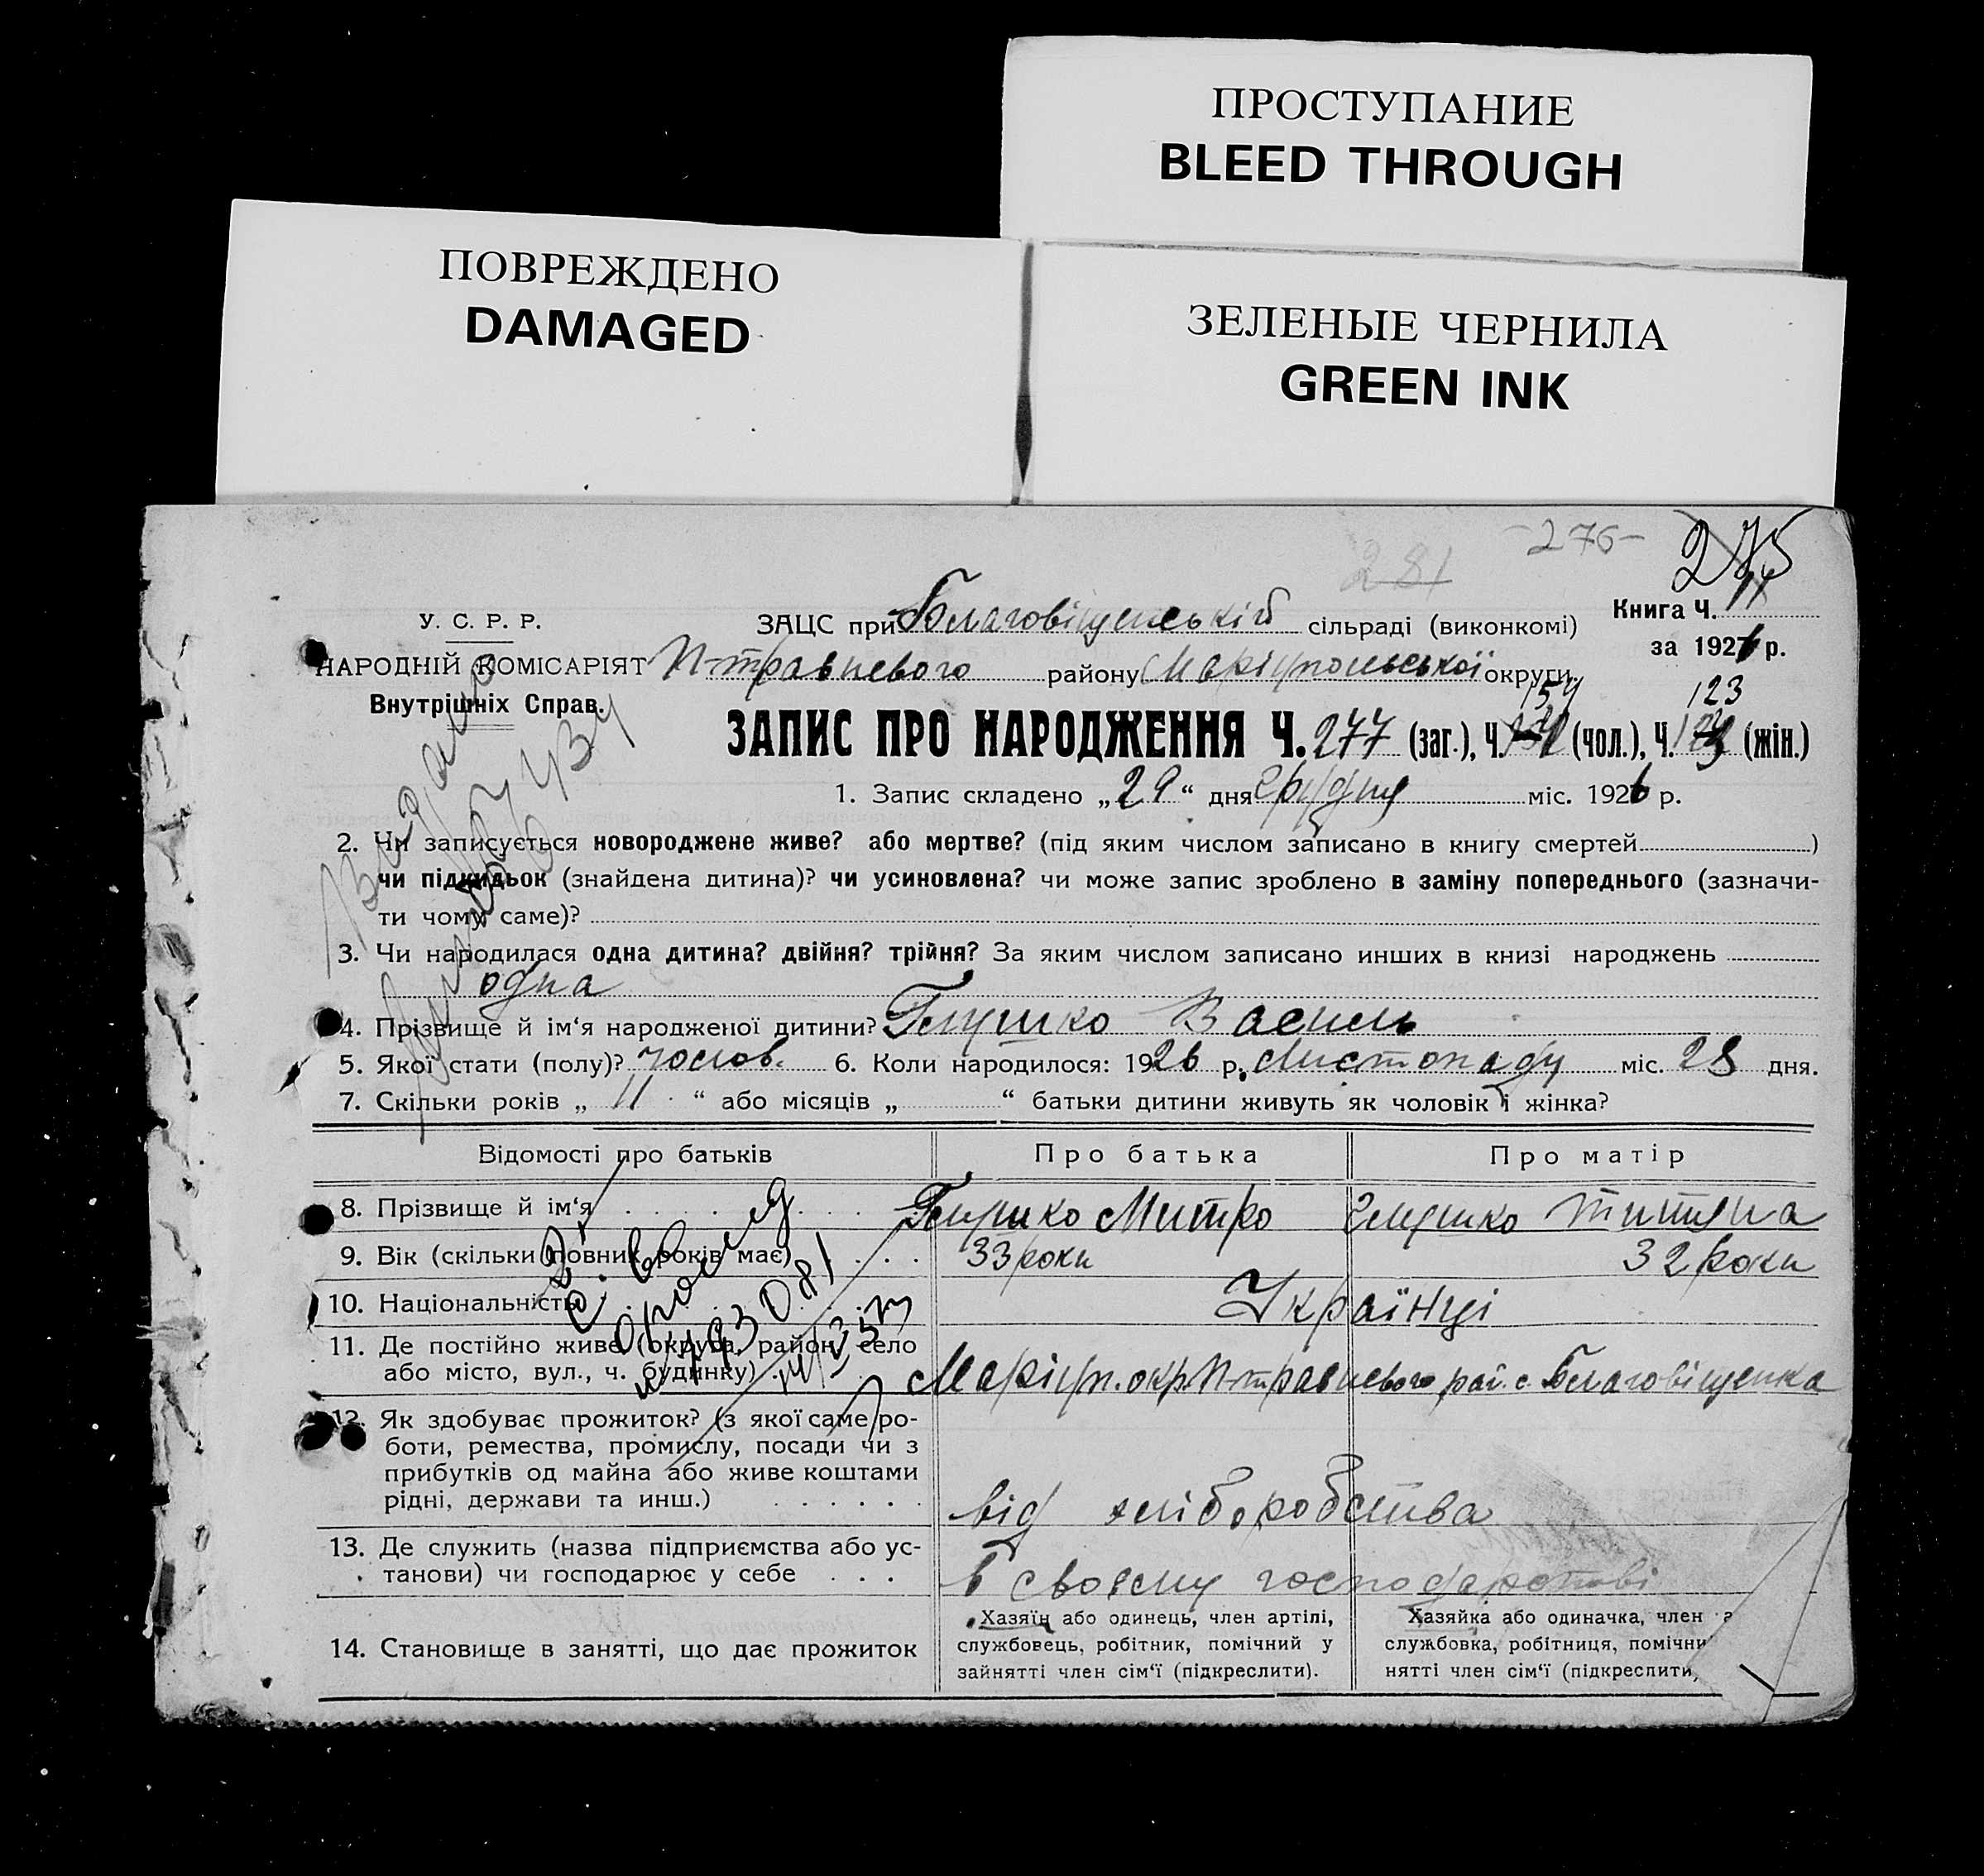 ПРОСТУПАНИЕ
BLEED THROUGH
ПОВРЕЖДЕНО
DAMAGED
ЗЕЛЕНЫЕ ЧЕРНИЛА
GREEN INK
-276-
275
281
У. С. Р. Р.
ЗАЦС при Благовіщенській сільраді (виконкомі)
Книга Ч. 11
НАРОДНІЙ КОМІСАРІЯТ П-травневого району Маріупольської округи.
за 1926 р.
Внутрішніх Справ.
154 123
ЗАПИС ПРО НАРОДЖЕННЯ Ч. 277 (заг.), Ч. (чол.), Ч. (жін.)
1. Запис складено „29“ дня Грудня міс. 1926 р.
2. Чи записується новороджене живе? або мертве? (під яким числом записано в книгу смертей )
чи підкидьок (знайдена дитина)? чи усиновлена? чи може запис зроблено в заміну попереднього (зазначи-
ти чому саме)?
3. Чи народилася одна дитина? двійня? трійня? За яким числом записано инших в книзі народжень
одна
4. Прізвище й ім‘я народженої дитини? Глушко Василь
5. Якої стати (полу)? чолов. 6. Коли народилося: 1926 р. Листопаду міс. 28 дня.
7. Скільки років „ 11 “ або місяців „ “ батьки дитини живуть як чоловік і жінка?
Відомості про батьків Про батька Про матір
8. Прізвище й ім‘я Глушко Митро Глушко Титяна
9. Вік (скільки повних років має) 33 роки 32 роки
10. Національність Українці
11. Де постійно живе (округа, район, село
або місто, вул., ч. будинку) Маріуп. окр. П-травневого рай. с. Благовіщенка
12. Як здобуває прожиток? (з якої саме ро-
боти, ремества, промислу, посади чи з
прибутків од майна або живе коштами
рідні, держави та инш.)
від хліборобства
13. Де служить (назва підприємства або ус-
танови) чи господарює у себе
в своєму господарстві
14. Становище в занятті, що дає прожиток
Хазяїн або одинець, член артілі,
службовець, робітник, помічний у
зайнятті член сім‘ї (підкреслити).
Хазяйка або одиначка, член
службовка, робітниця, помічни
нятті член сім‘ї (підкреслити